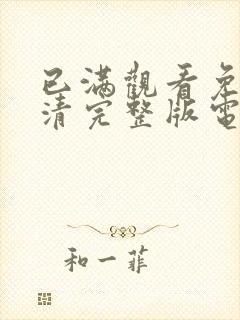 已满觀看免
清完整版電
和一菲